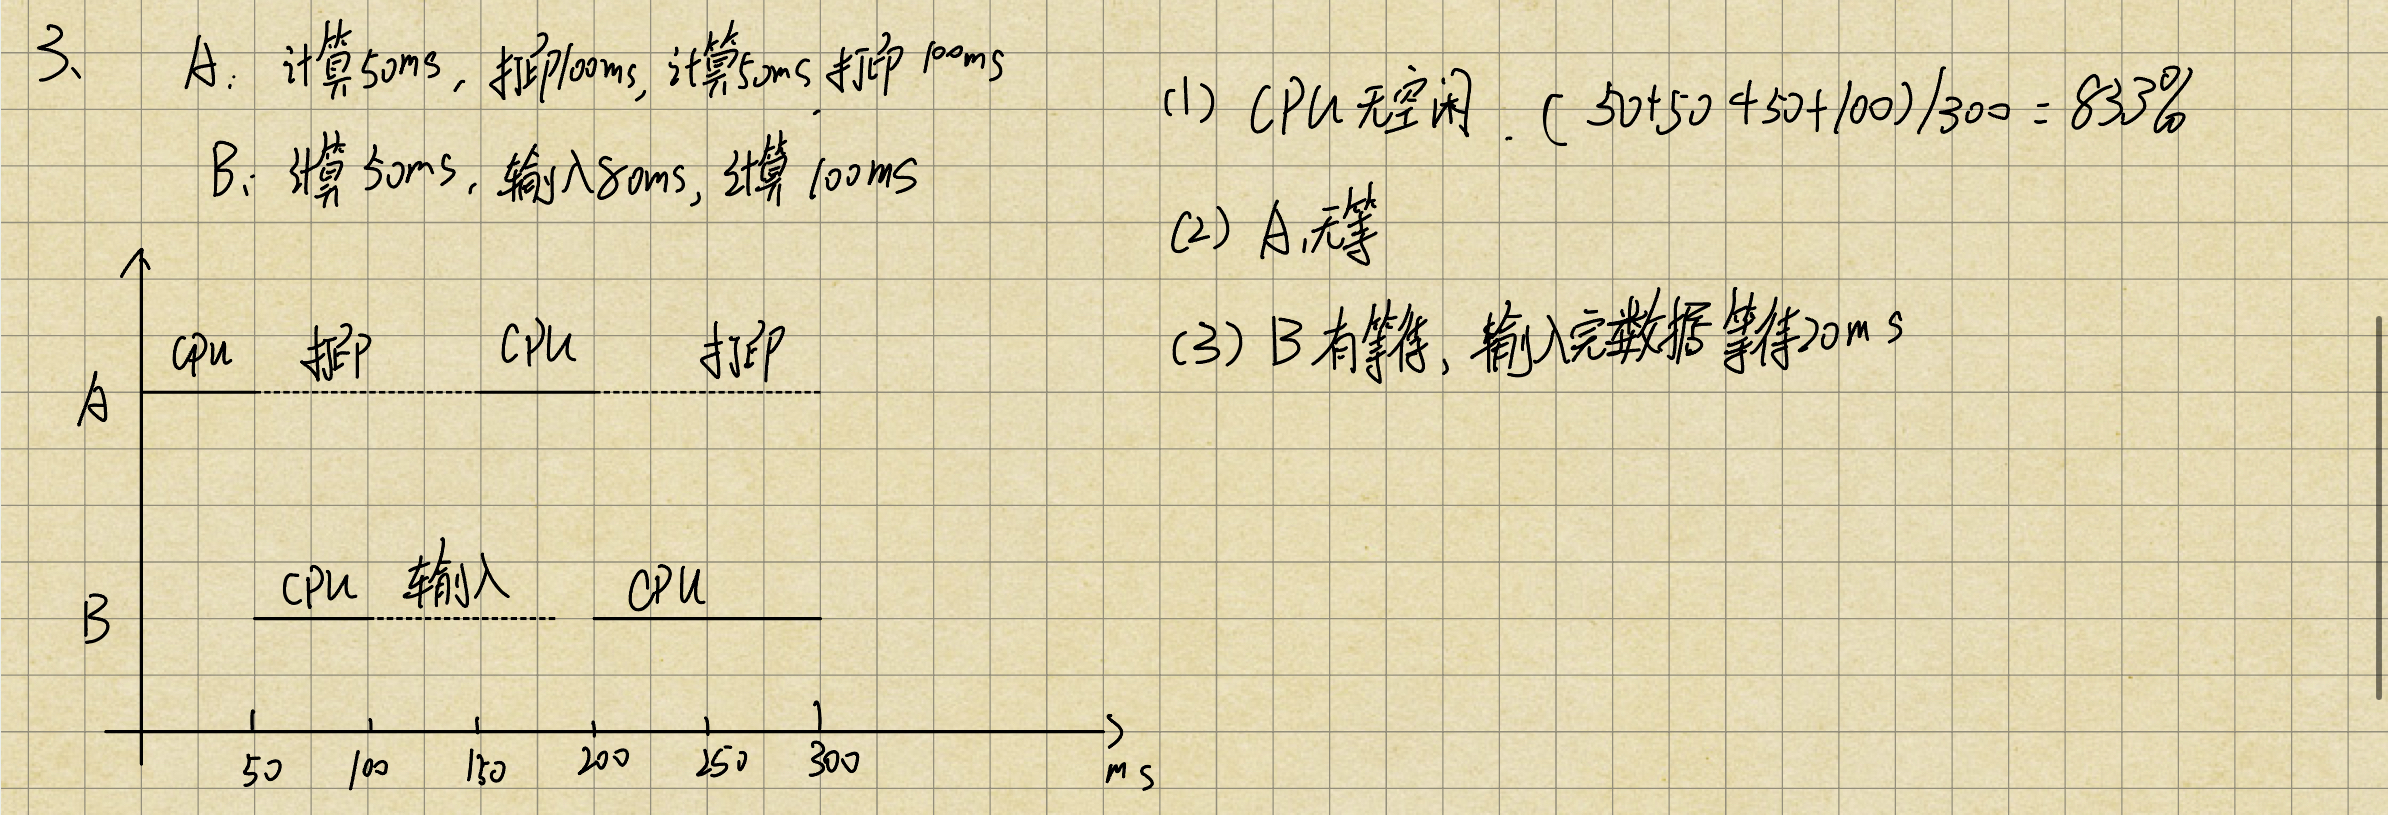 3、 A: 计算50ms, 打印100ms, 计算50ms 打印 100ms
B: 计算 50ms, 输入80ms, 计算 100ms
CPU 打印 CPU 打印
A
CPU 输入 CPU
B
50 100 150 200 250 300 ms
(1) CPU 无空闲. ( 50+50+50+100)/300 = 83.3%
(2) A,无等
(3) B 有等待, 输入完数据 等待20ms